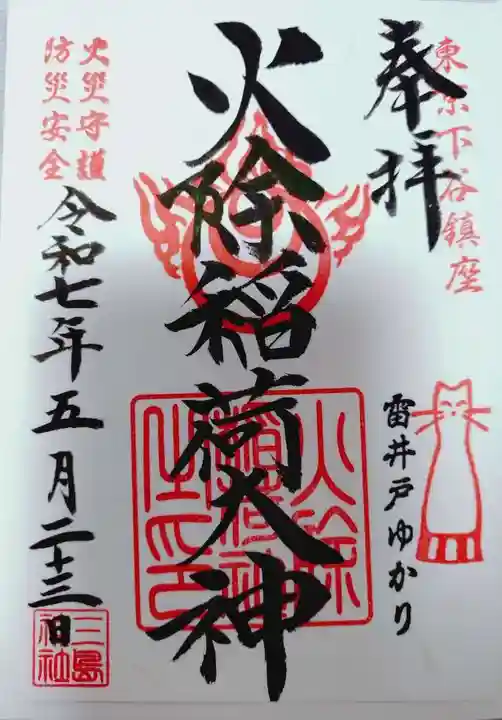 東京下谷鎮座
奉拝
雷井戸ゆかり
火除稲荷大神
火除
稲荷神
社之印
火災守護
防災安全
令和七年五月二十三日
三島
神社